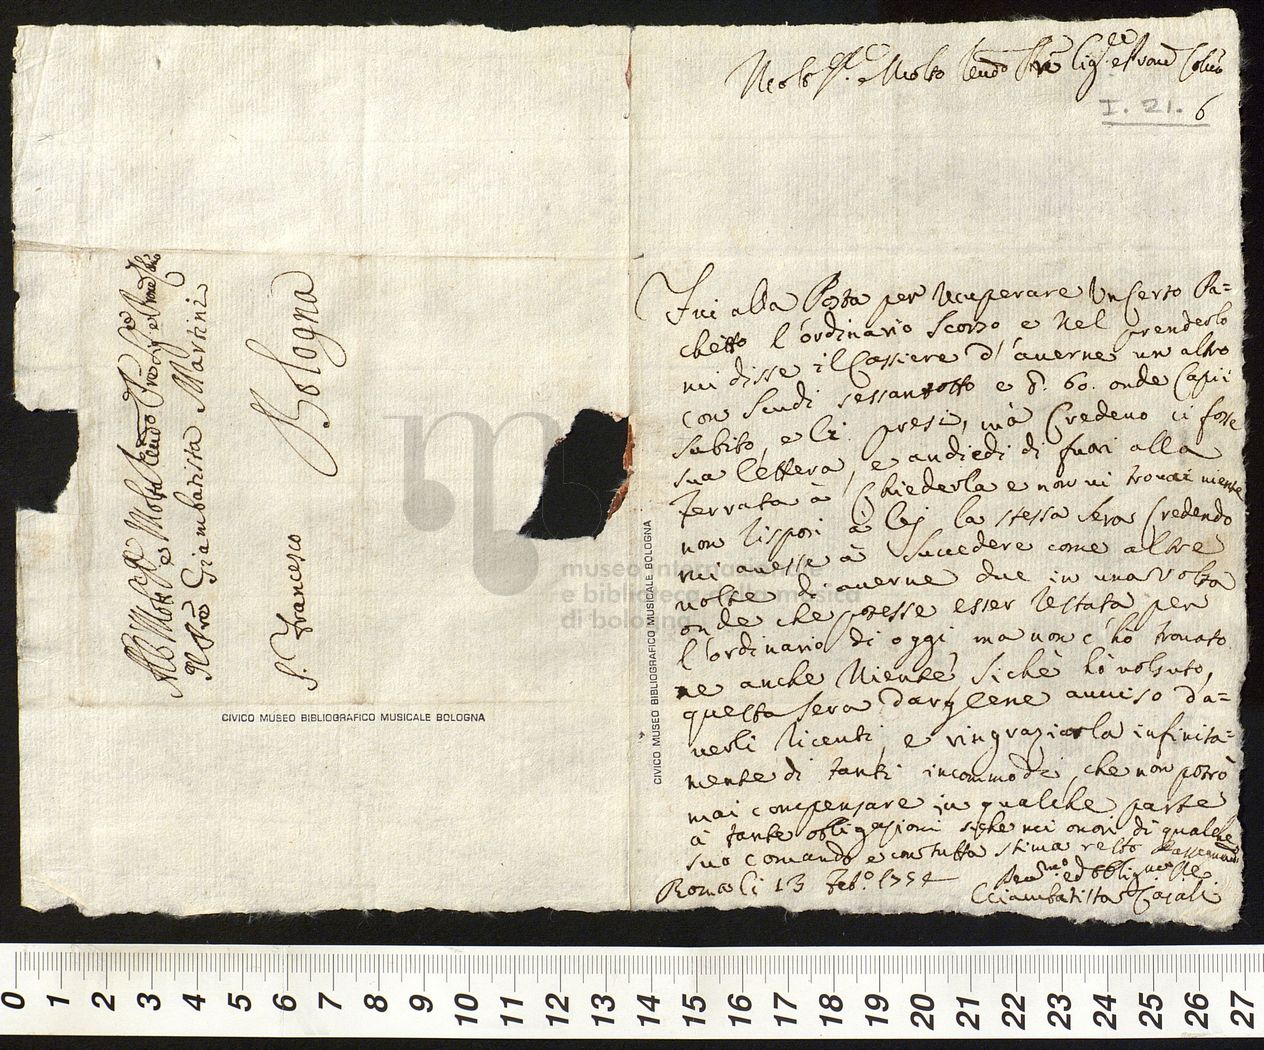 Molto Ill.re e Molto Rendo Pre Sig.re e Prone Colmo
I. 21. 6
Fui alla Posta per recuperare un certo Pa=
chetto l'ordinario scorso e nel prenderlo
mi disse il Cassiere d'averne un altro
con scudi sessantotto e b. 60. onde Capii
subito, e li presi, mà Credevo ci fosse
sua lettera, e andiedi di fuori alla
ferrata à Chiederla e non vi trovai niente
non risposi à lej la stessa sera Credendo
mi avesse à succedere come altre
volte di averne due in una volta
onde che potesse esser restata per
l'ordinario di oggi ma non c'hò trovato
ne anche Niente, sichè hò volsuto,
questa sera darglene avviso d'a=
verli ricenti, e ringraziarla infinita=
mente di tanti incommodi, che non potrò
mai compensare in qualche parte
à tante obligazioni siche mi onori di qualche
suo comando e con tutta stima resto
Roma li 13 Feb.o 1754
Giambatista Casali
Al Molto Ill.re e Molto Rendo Pre Sig.re e Prone
Il Pre Giambatista Martini
S. Francesco
Bologna
CIVICO MUSEO BIBLIOGRAFICO MUSICALE BOLOGNA
CIVICO MUSEO BIBLIOGRAFICO MUSICALE BOLOGNA
museo internazionale
e biblioteca della musica
di bologna
0 1 2 3 4 5 6 7 8 9 10 11 12 13 14 15 16 17 18 19 20 21 22 23 24 25 26 27